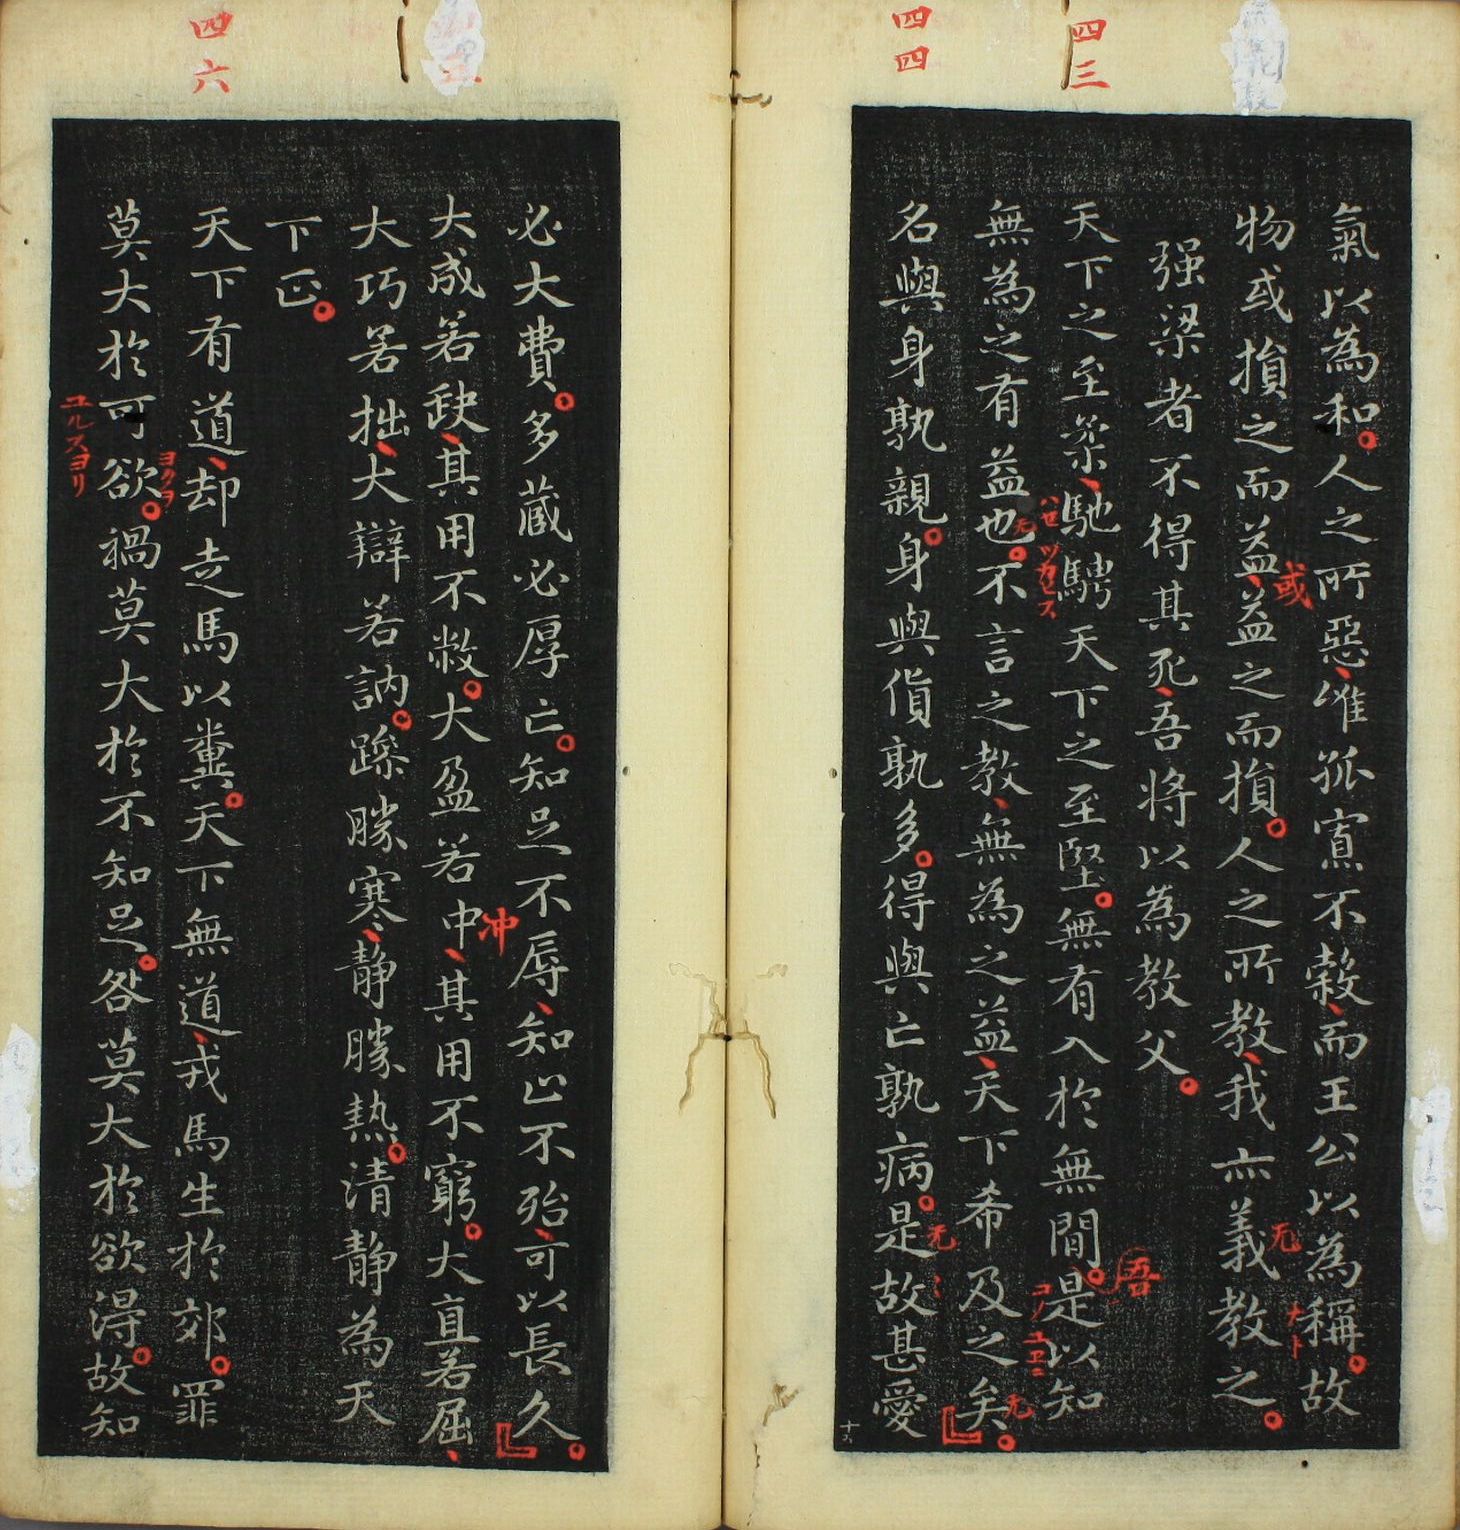 四三
四四
氣以為和。人之所惡、惟孤寡不穀、而王公以為稱。故
物或損之而益、益之而損。人之所教、我亦義教之。
或
无
ナト
强梁者不得其死、吾將以為教父。
吾
天下之至柔、馳騁天下之至堅。無有入於無間。是以知
ハセ
ツカヒス
コノユヱニ
無為之有益也。不言之教、無為之益、天下希及之矣。
无
无
名與身孰親。身與貨孰多。得與亡孰病。是故甚愛
无
十六
四六
必大費。多藏必厚亡。知足不辱、知止不殆、可以長久。
大成若缺、其用不敝。大盈若中、其用不窮。大直若屈、
冲
大巧若拙、大辯若訥。躁勝寒、靜勝熱。清靜為天
下正。
天下有道、却走馬以糞。天下無道、戎馬生於郊。罪
莫大於可欲。禍莫大於不知足。咎莫大於欲得。故知
ヨクヲ
ユルスヨリ